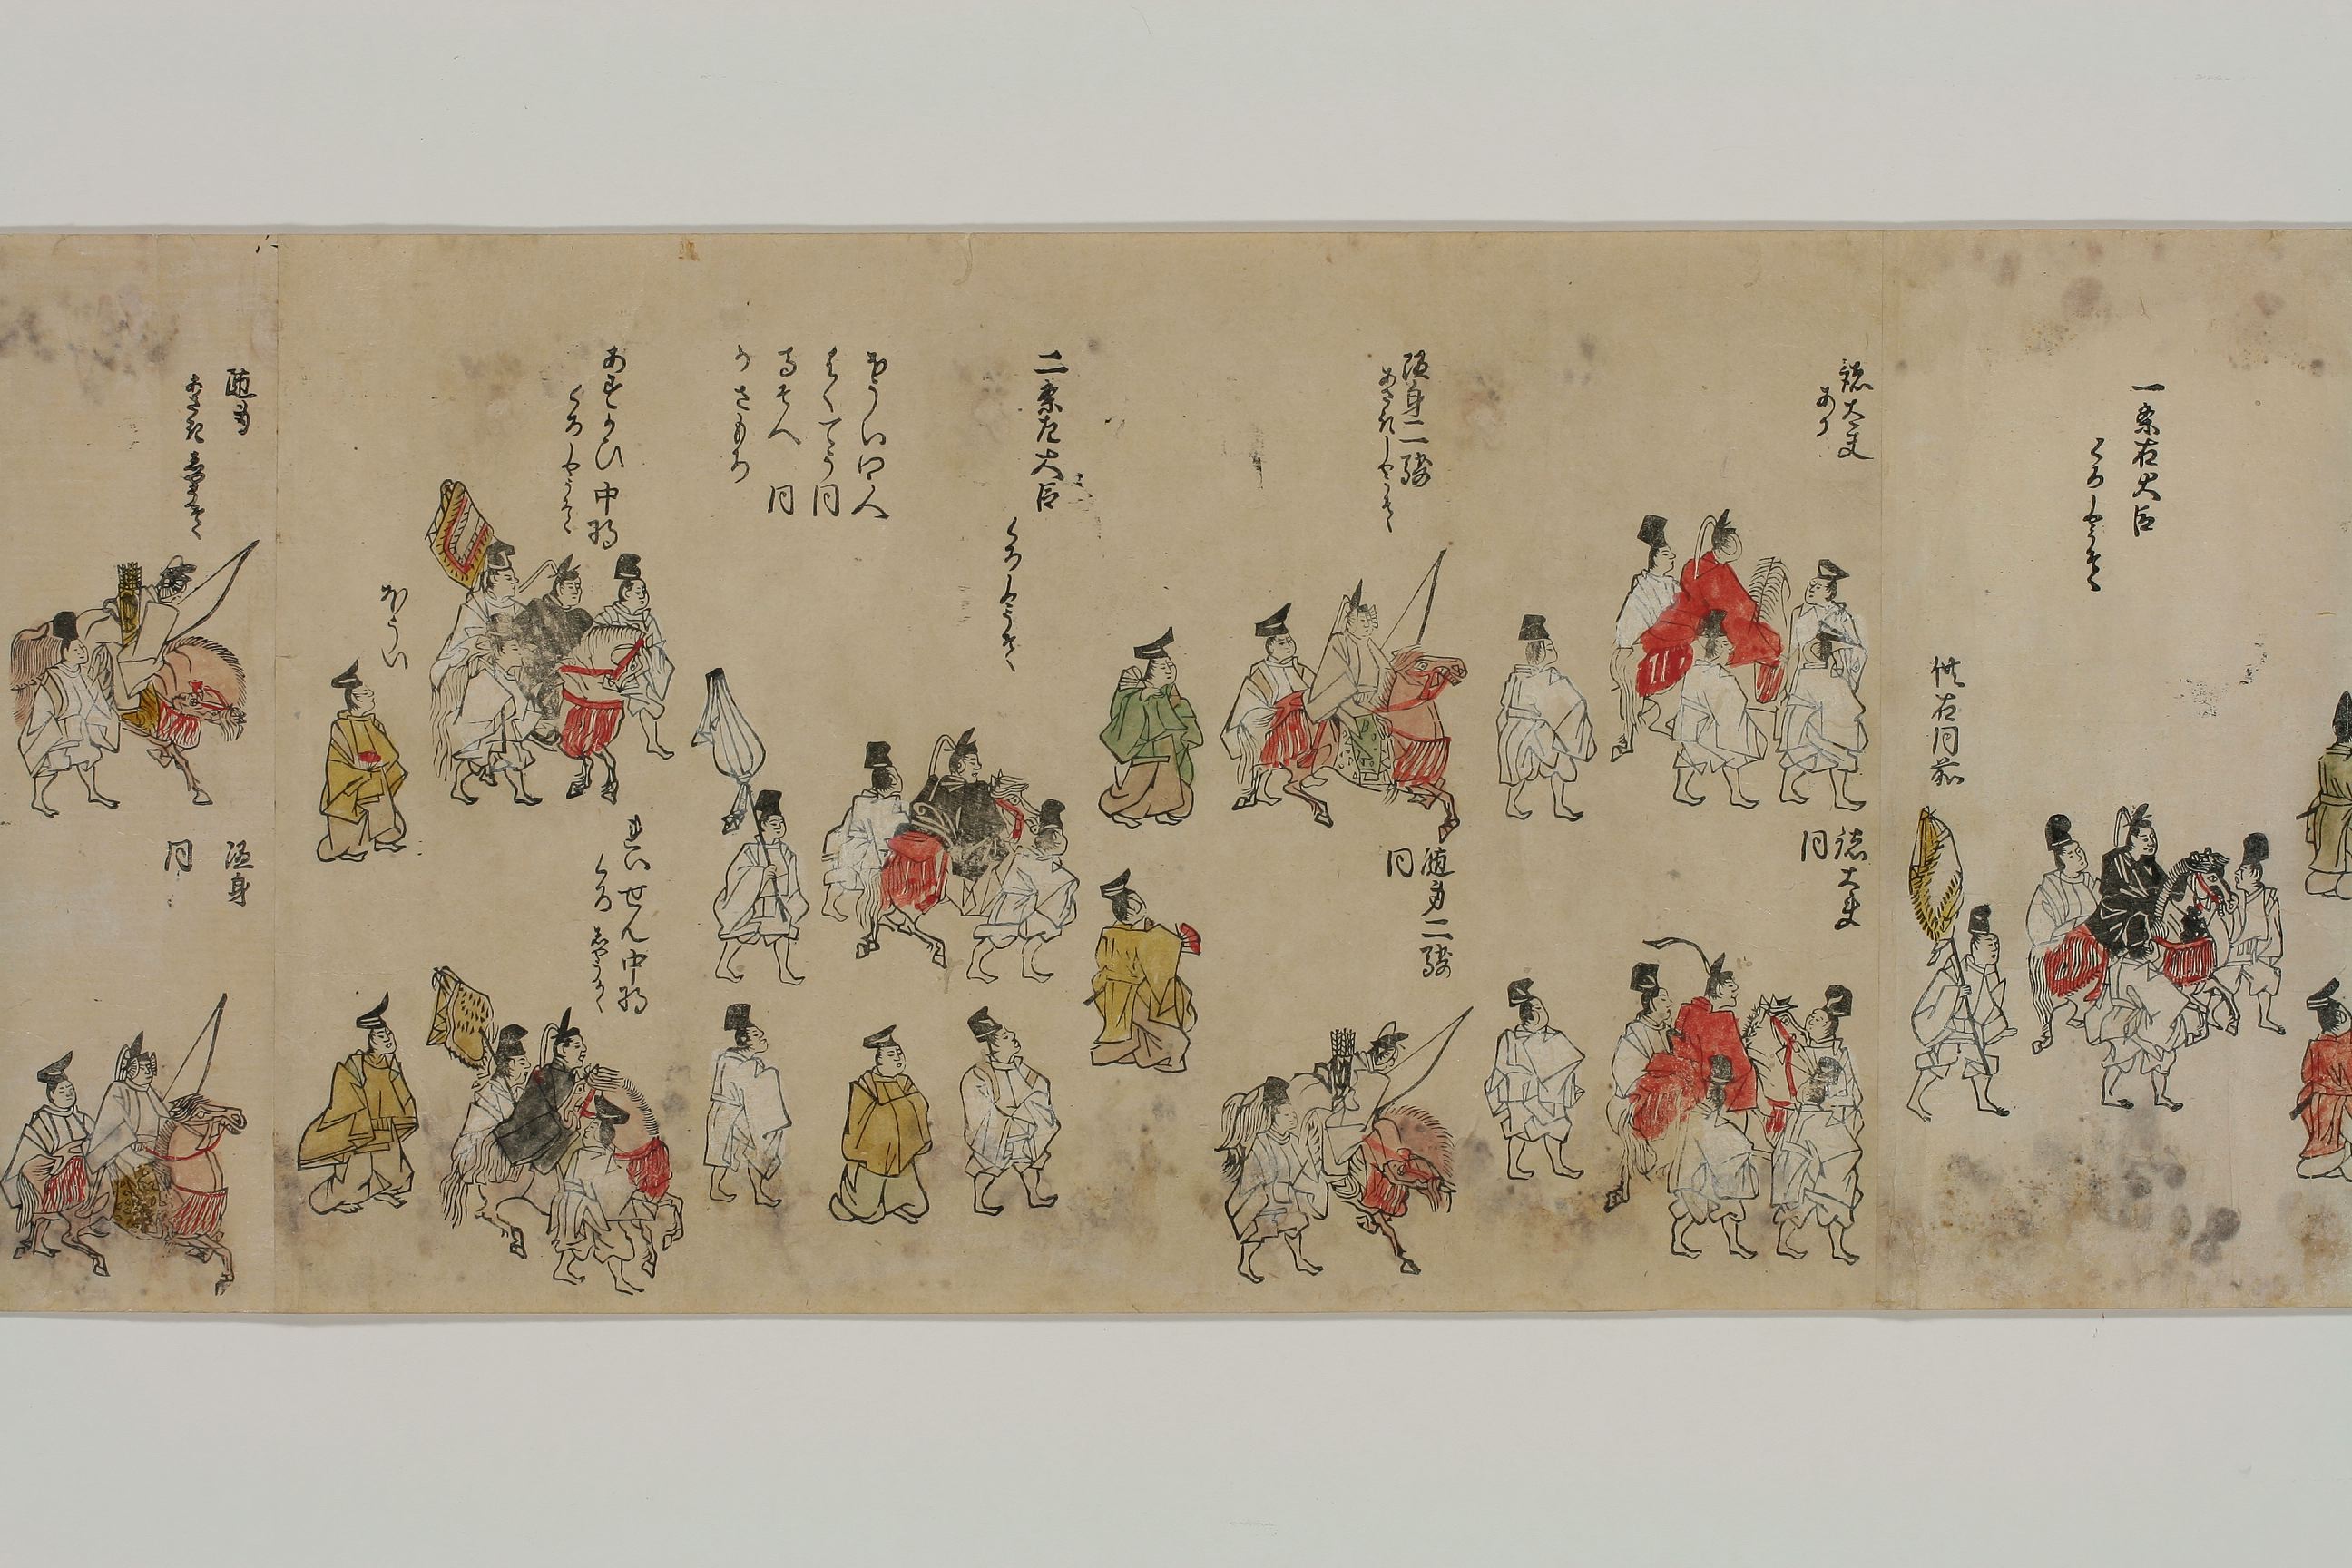 一条右大臣
くろしやうそく
供右同前
諸大夫
あか
諸大夫
同
随身二騎
あさきしやうそく
随身二騎
同
二条左大臣
くろしやうそく
ほうい四人
はくてう同
馬そへ同
かさもち
あすかひ中将
くろしやうそく
ほうい
れいせん中将
くろしやうそく
随身
あさきしやうそく
随身
同